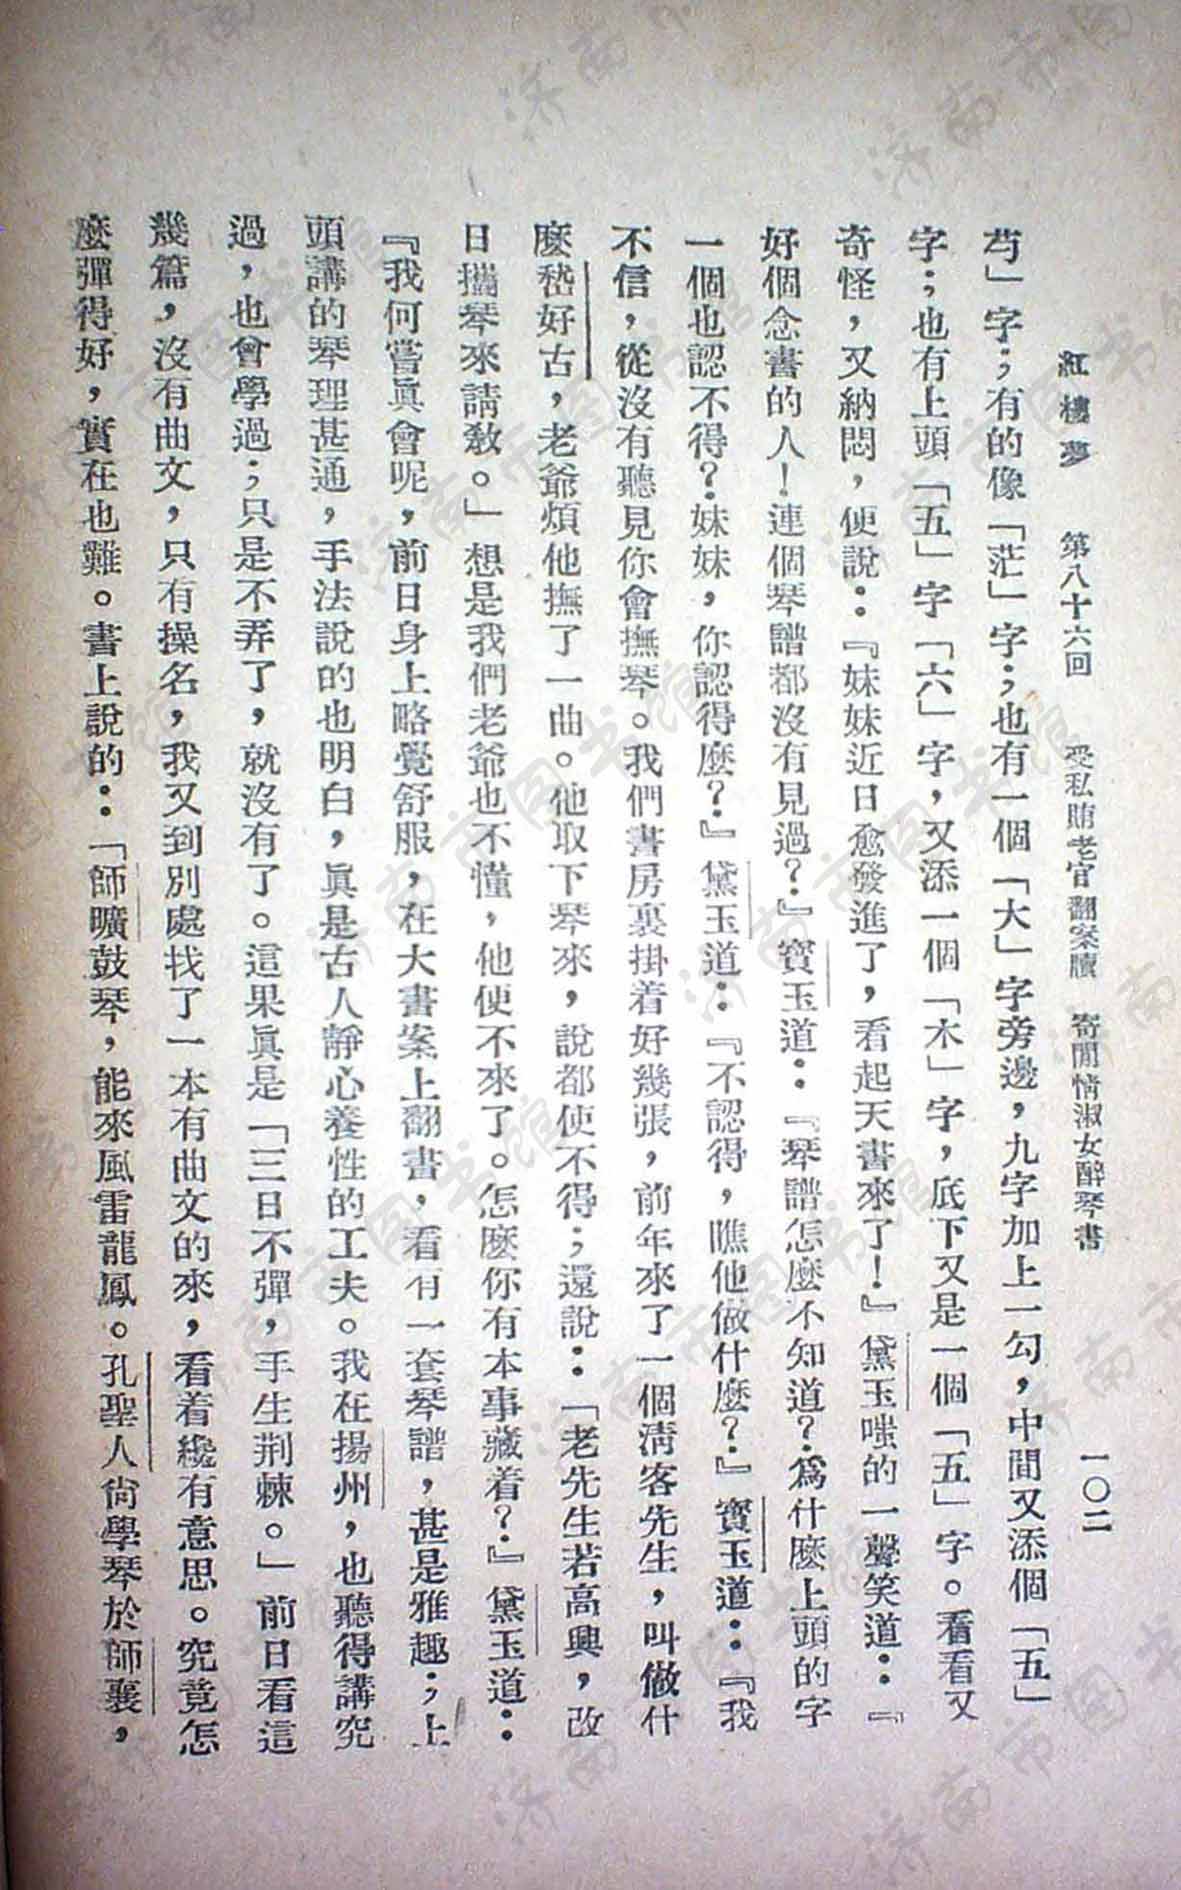 紅樓夢　第八十六回　受私賄老官翻案牘　寄閒情淑女解琴書　一〇二
芍」字；有的像「茫」字；也有一個「大」字旁邊，九字加上一勾，中間又添個「五」
字；也有上頭「五」字「六」字，又添一個「木」字，底下又是一個「五」字。看看又
奇怪，又納悶，便說：『妹妹近日愈發進了，看起天書來了！』黛玉嗤的一聲笑道：『
好個念書的人！連個琴譜都沒有見過？』寳玉道：『琴譜怎麼不知道？爲什麼上頭的字
一個也認不得？妹妹，你認得麼？』黛玉道：『不認得，瞧他做什麼？』寳玉道：『我
不信，從沒有聽見你會撫琴。我們書房裏掛着好幾張，前年來了一個清客先生，叫做什
麼嵇好古，老爺煩他撫了一曲。他取下琴來，說都使不得；還說：「老先生若高興，改
日攜琴來請教。」想是我們老爺也不懂，他便不來了。怎麼你有本事藏着？』黛玉道：
『我何嘗眞會呢，前日身上略覺舒服，在大書案上翻書，看有一套琴譜，甚是雅趣；上
頭講的琴理甚通，手法說的也明白，眞是古人靜心養性的工夫。我在揚州，也聽得講究
過，也會學過；只是不弄了，就沒有了。這果眞是「三日不彈，手生荆棘。」前日看這
幾篇，沒有曲文，只有操名，我又到別處找了一本有曲文的來，看着纔有意思。究竟怎
麼彈得好，實在也難。書上說的：「師曠鼓琴，能來風雷龍鳳。孔聖人尙學琴於師襄，
济南市图书馆